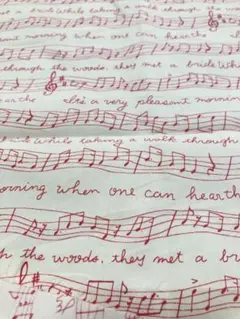 a bride While taking a walk through the wo
sant morning when one can hearthe
through the woods, they met a bride Whi
earthe It's a very pleasant morning
bride While taking a walk through
orning when one can hearth
h the woods, they met a br